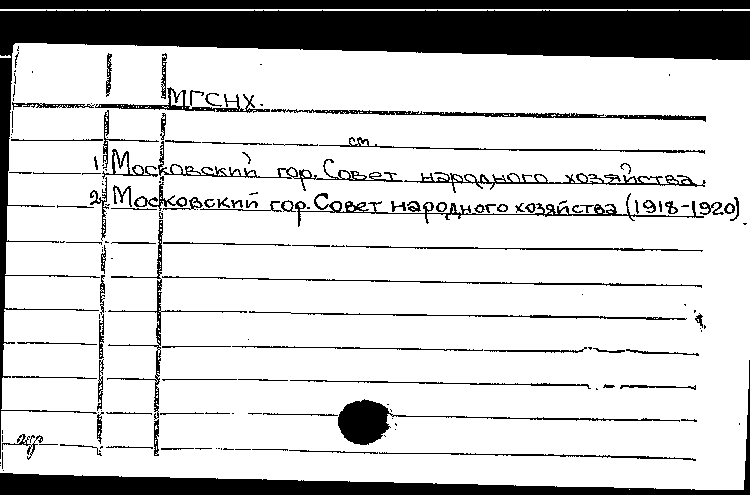 МГСНХ.
см.
1 Московский гор. Совет народного хозяйства.
2 Московский гор. Совет народного хозяйства (1918-1920)